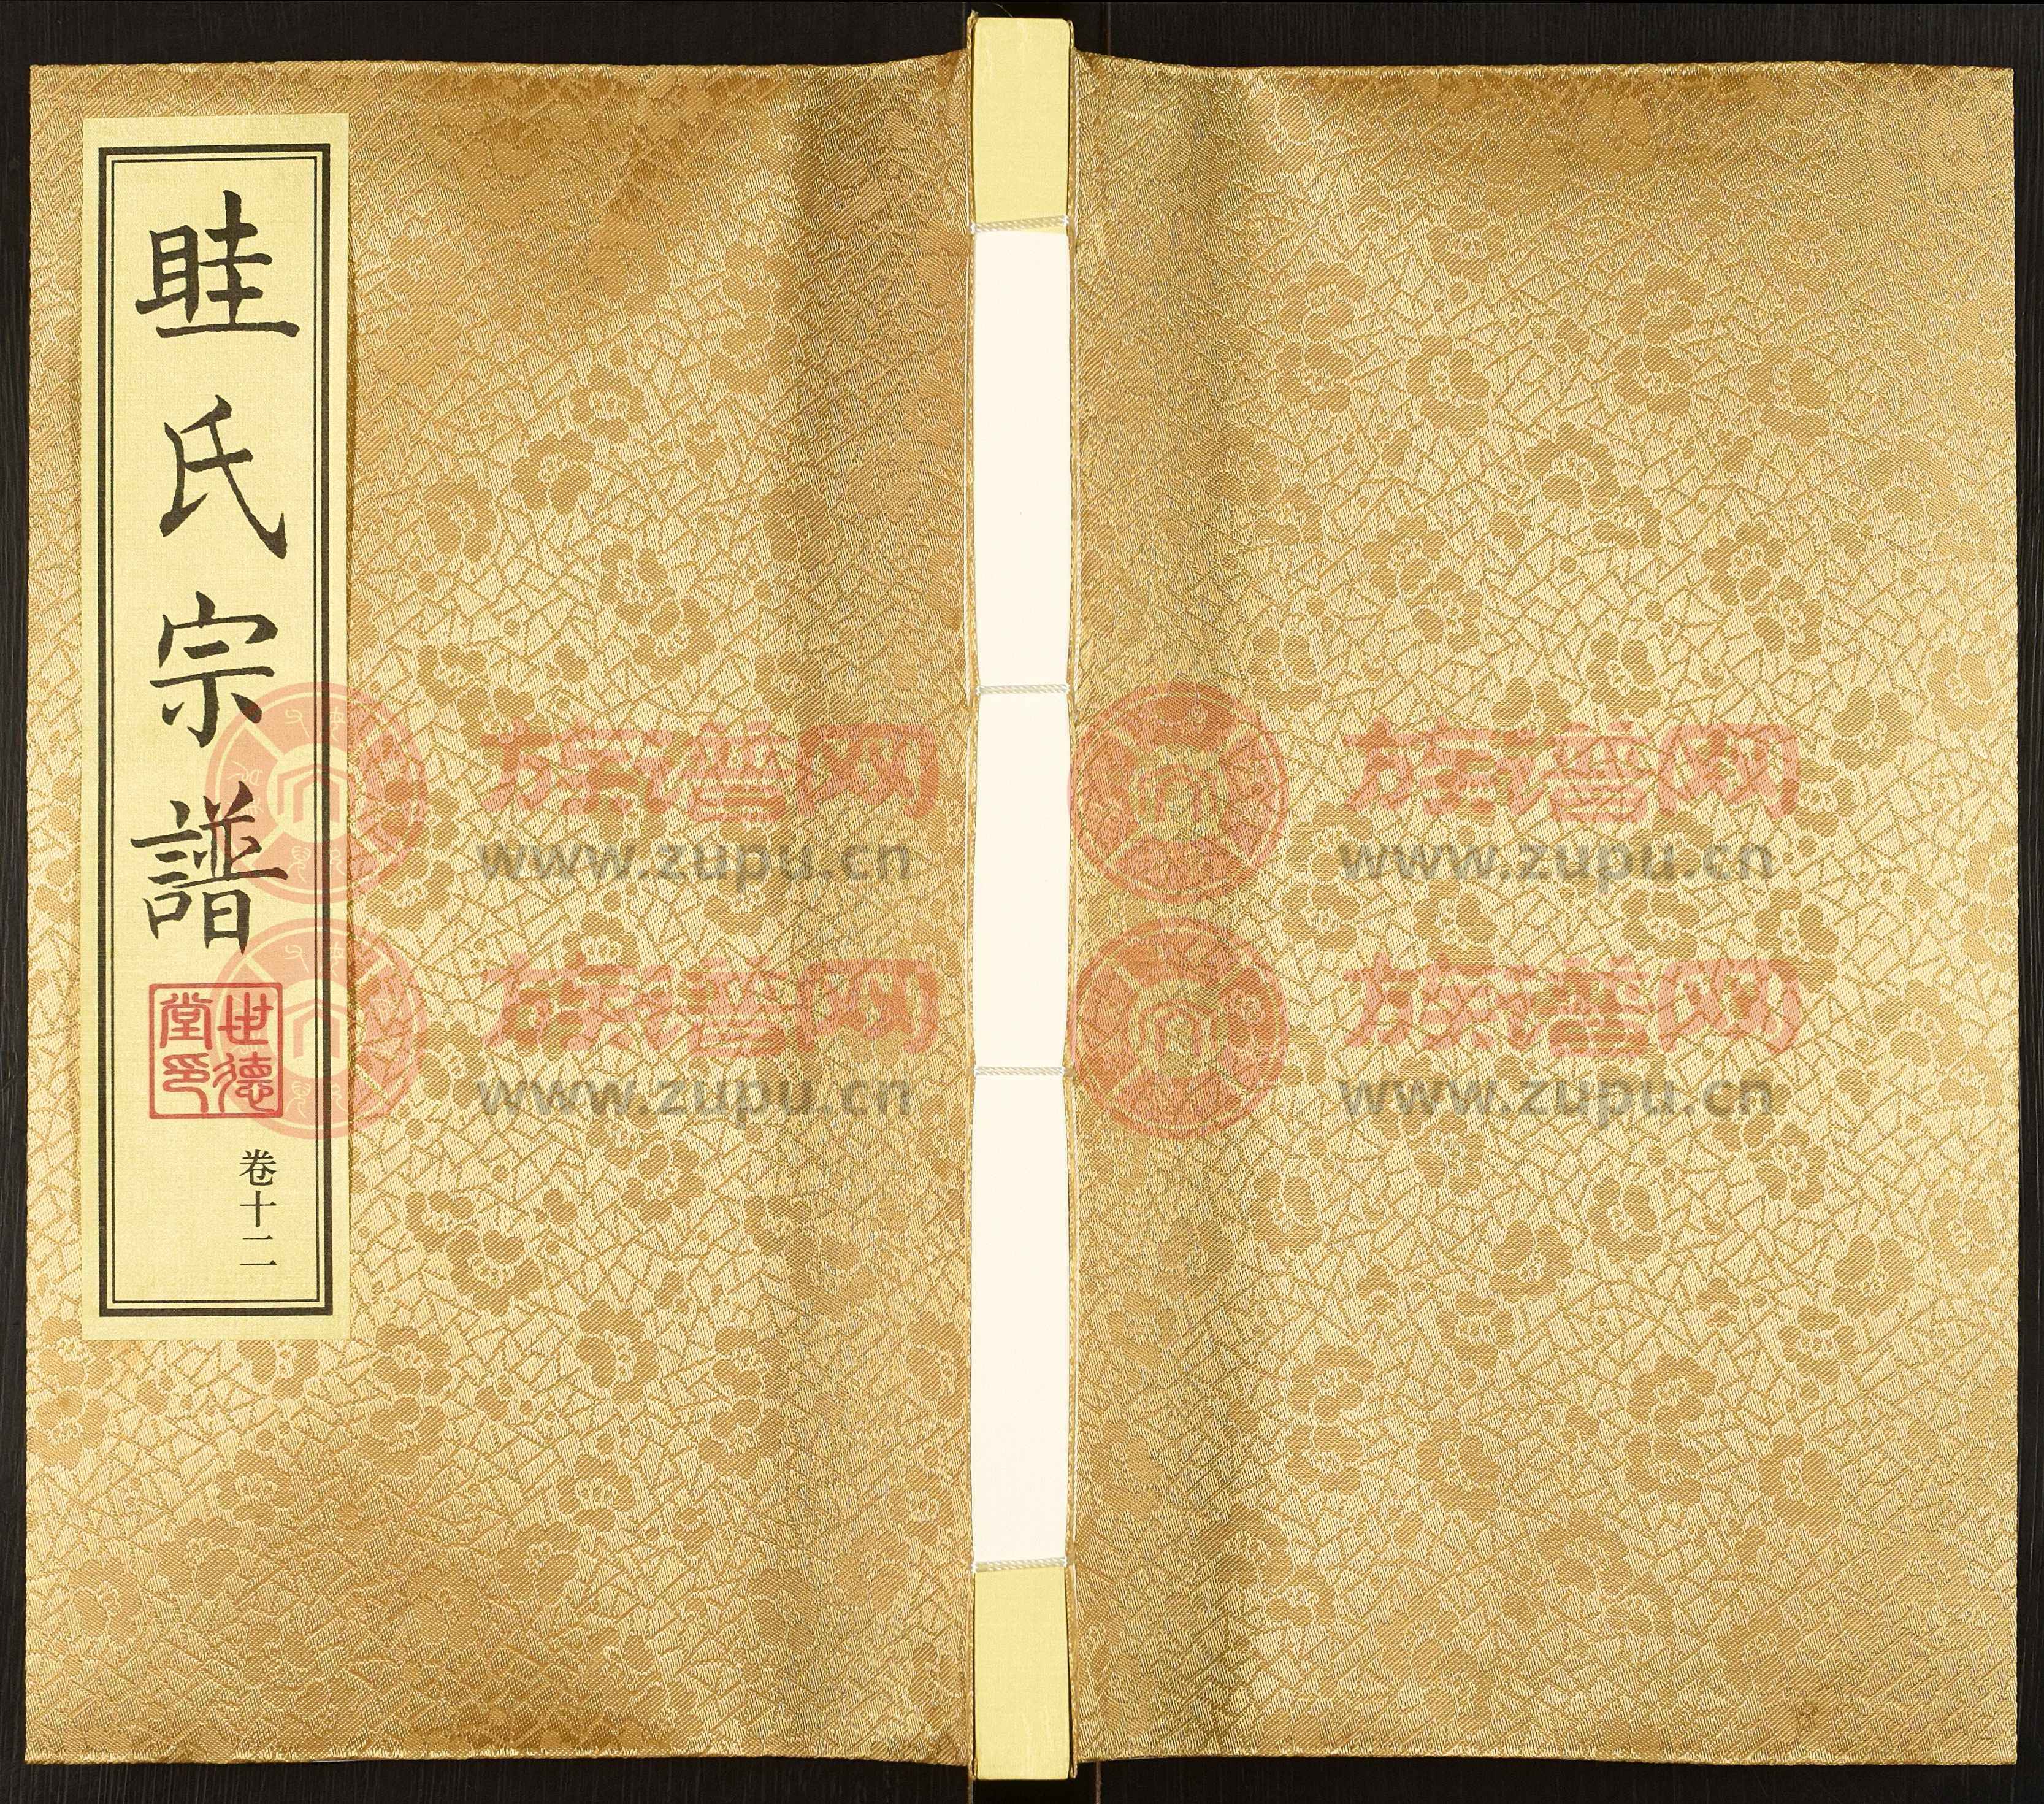 眭氏宗譜
世德堂印
卷十二
族譜网
www.zupu.cn
族譜网
www.zupu.cn
族譜网
www.zupu.cn
族譜网
www.zupu.cn